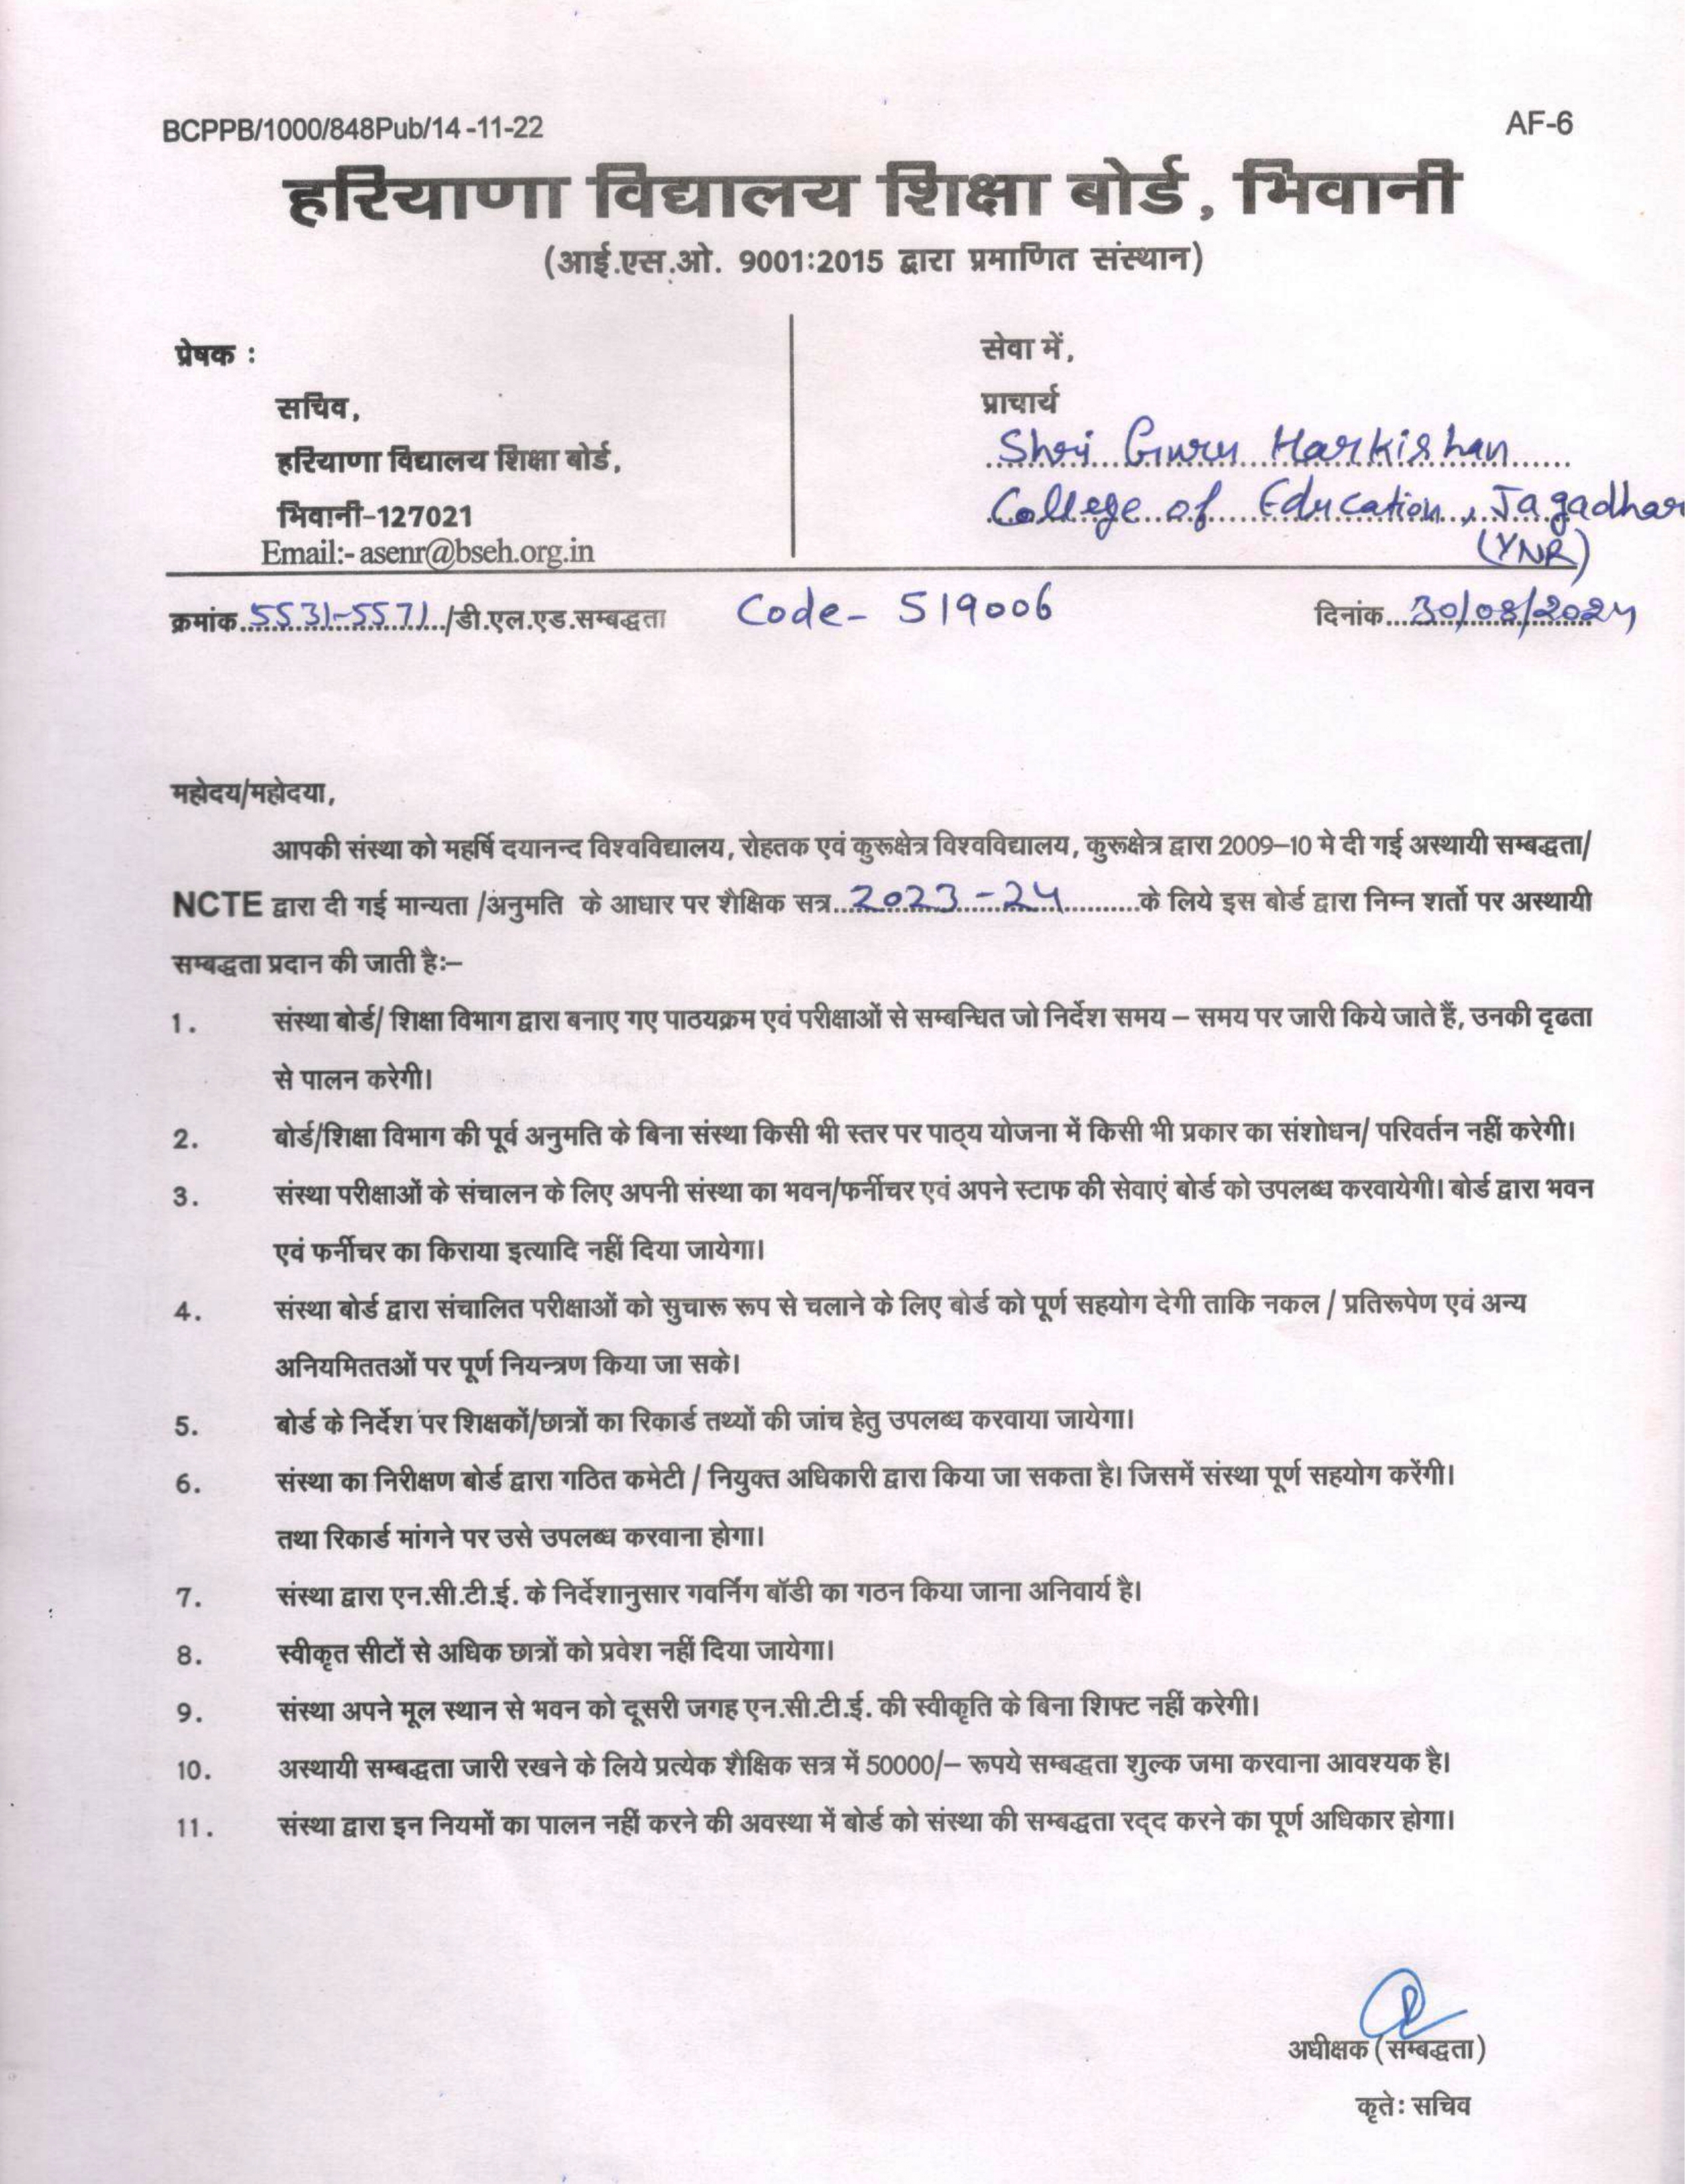 BCPPB/1000/848Pub/14-11-22
AF-6
हरियाणा विद्यालय शिक्षा बोर्ड, भिवानी
(आई.एस.ओ. 9001:2015 द्वारा प्रमाणित संस्थान)
प्रेषक :
सचिव,
हरियाणा विद्यालय शिक्षा बोर्ड,
भिवानी-127021
Email:- asenr@bseh.org.in
सेवा में,
प्राचार्य
Shri Guru Harkishan
College of Education, Jagadhar
(YNR)
क्रमांक 5531-5571/डी.एल.एड.सम्बद्धता Code- 519006 दिनांक...30/08/2024
महोदय/महोदया,
आपकी संस्था को महर्षि दयानन्द विश्वविद्यालय, रोहतक एवं कुरूक्षेत्र विश्वविद्यालय, कुरूक्षेत्र द्वारा 2009–10 मे दी गई अस्थायी सम्बद्धता/
NCTE द्वारा दी गई मान्यता /अनुमति के आधार पर शैक्षिक सत्र...2023-24...के लिये इस बोर्ड द्वारा निम्न शर्तो पर अस्थायी
सम्बद्धता प्रदान की जाती है:–
1. संस्था बोर्ड/ शिक्षा विभाग द्वारा बनाए गए पाठयक्रम एवं परीक्षाओं से सम्बन्धित जो निर्देश समय – समय पर जारी किये जाते हैं, उनकी दृढता
से पालन करेगी।
2. बोर्ड/शिक्षा विभाग की पूर्व अनुमति के बिना संस्था किसी भी स्तर पर पाठ्य योजना में किसी भी प्रकार का संशोधन/ परिवर्तन नहीं करेगी।
3. संस्था परीक्षाओं के संचालन के लिए अपनी संस्था का भवन/फर्नीचर एवं अपने स्टाफ की सेवाएं बोर्ड को उपलब्ध करवायेगी। बोर्ड द्वारा भवन
एवं फर्नीचर का किराया इत्यादि नहीं दिया जायेगा।
4. संस्था बोर्ड द्वारा संचालित परीक्षाओं को सुचारू रूप से चलाने के लिए बोर्ड को पूर्ण सहयोग देगी ताकि नकल / प्रतिरूपेण एवं अन्य
अनियमिततओं पर पूर्ण नियन्त्रण किया जा सके।
5. बोर्ड के निर्देश पर शिक्षकों/छात्रों का रिकार्ड तथ्यों की जांच हेतु उपलब्ध करवाया जायेगा।
6. संस्था का निरीक्षण बोर्ड द्वारा गठित कमेटी / नियुक्त अधिकारी द्वारा किया जा सकता है। जिसमें संस्था पूर्ण सहयोग करेंगी।
तथा रिकार्ड मांगने पर उसे उपलब्ध करवाना होगा।
7. संस्था द्वारा एन.सी.टी.ई. के निर्देशानुसार गवर्निग बॉडी का गठन किया जाना अनिवार्य है।
8. स्वीकृत सीटों से अधिक छात्रों को प्रवेश नहीं दिया जायेगा।
9. संस्था अपने मूल स्थान से भवन को दूसरी जगह एन.सी.टी.ई. की स्वीकृति के बिना शिफ्ट नहीं करेगी।
10. अस्थायी सम्बद्धता जारी रखने के लिये प्रत्येक शैक्षिक सत्र में 50000/– रूपये सम्बद्धता शुल्क जमा करवाना आवश्यक है।
11. संस्था द्वारा इन नियमों का पालन नहीं करने की अवस्था में बोर्ड को संस्था की सम्बद्धता रद्द करने का पूर्ण अधिकार होगा।
अधीक्षक (सम्बद्धता)
कृते: सचिव